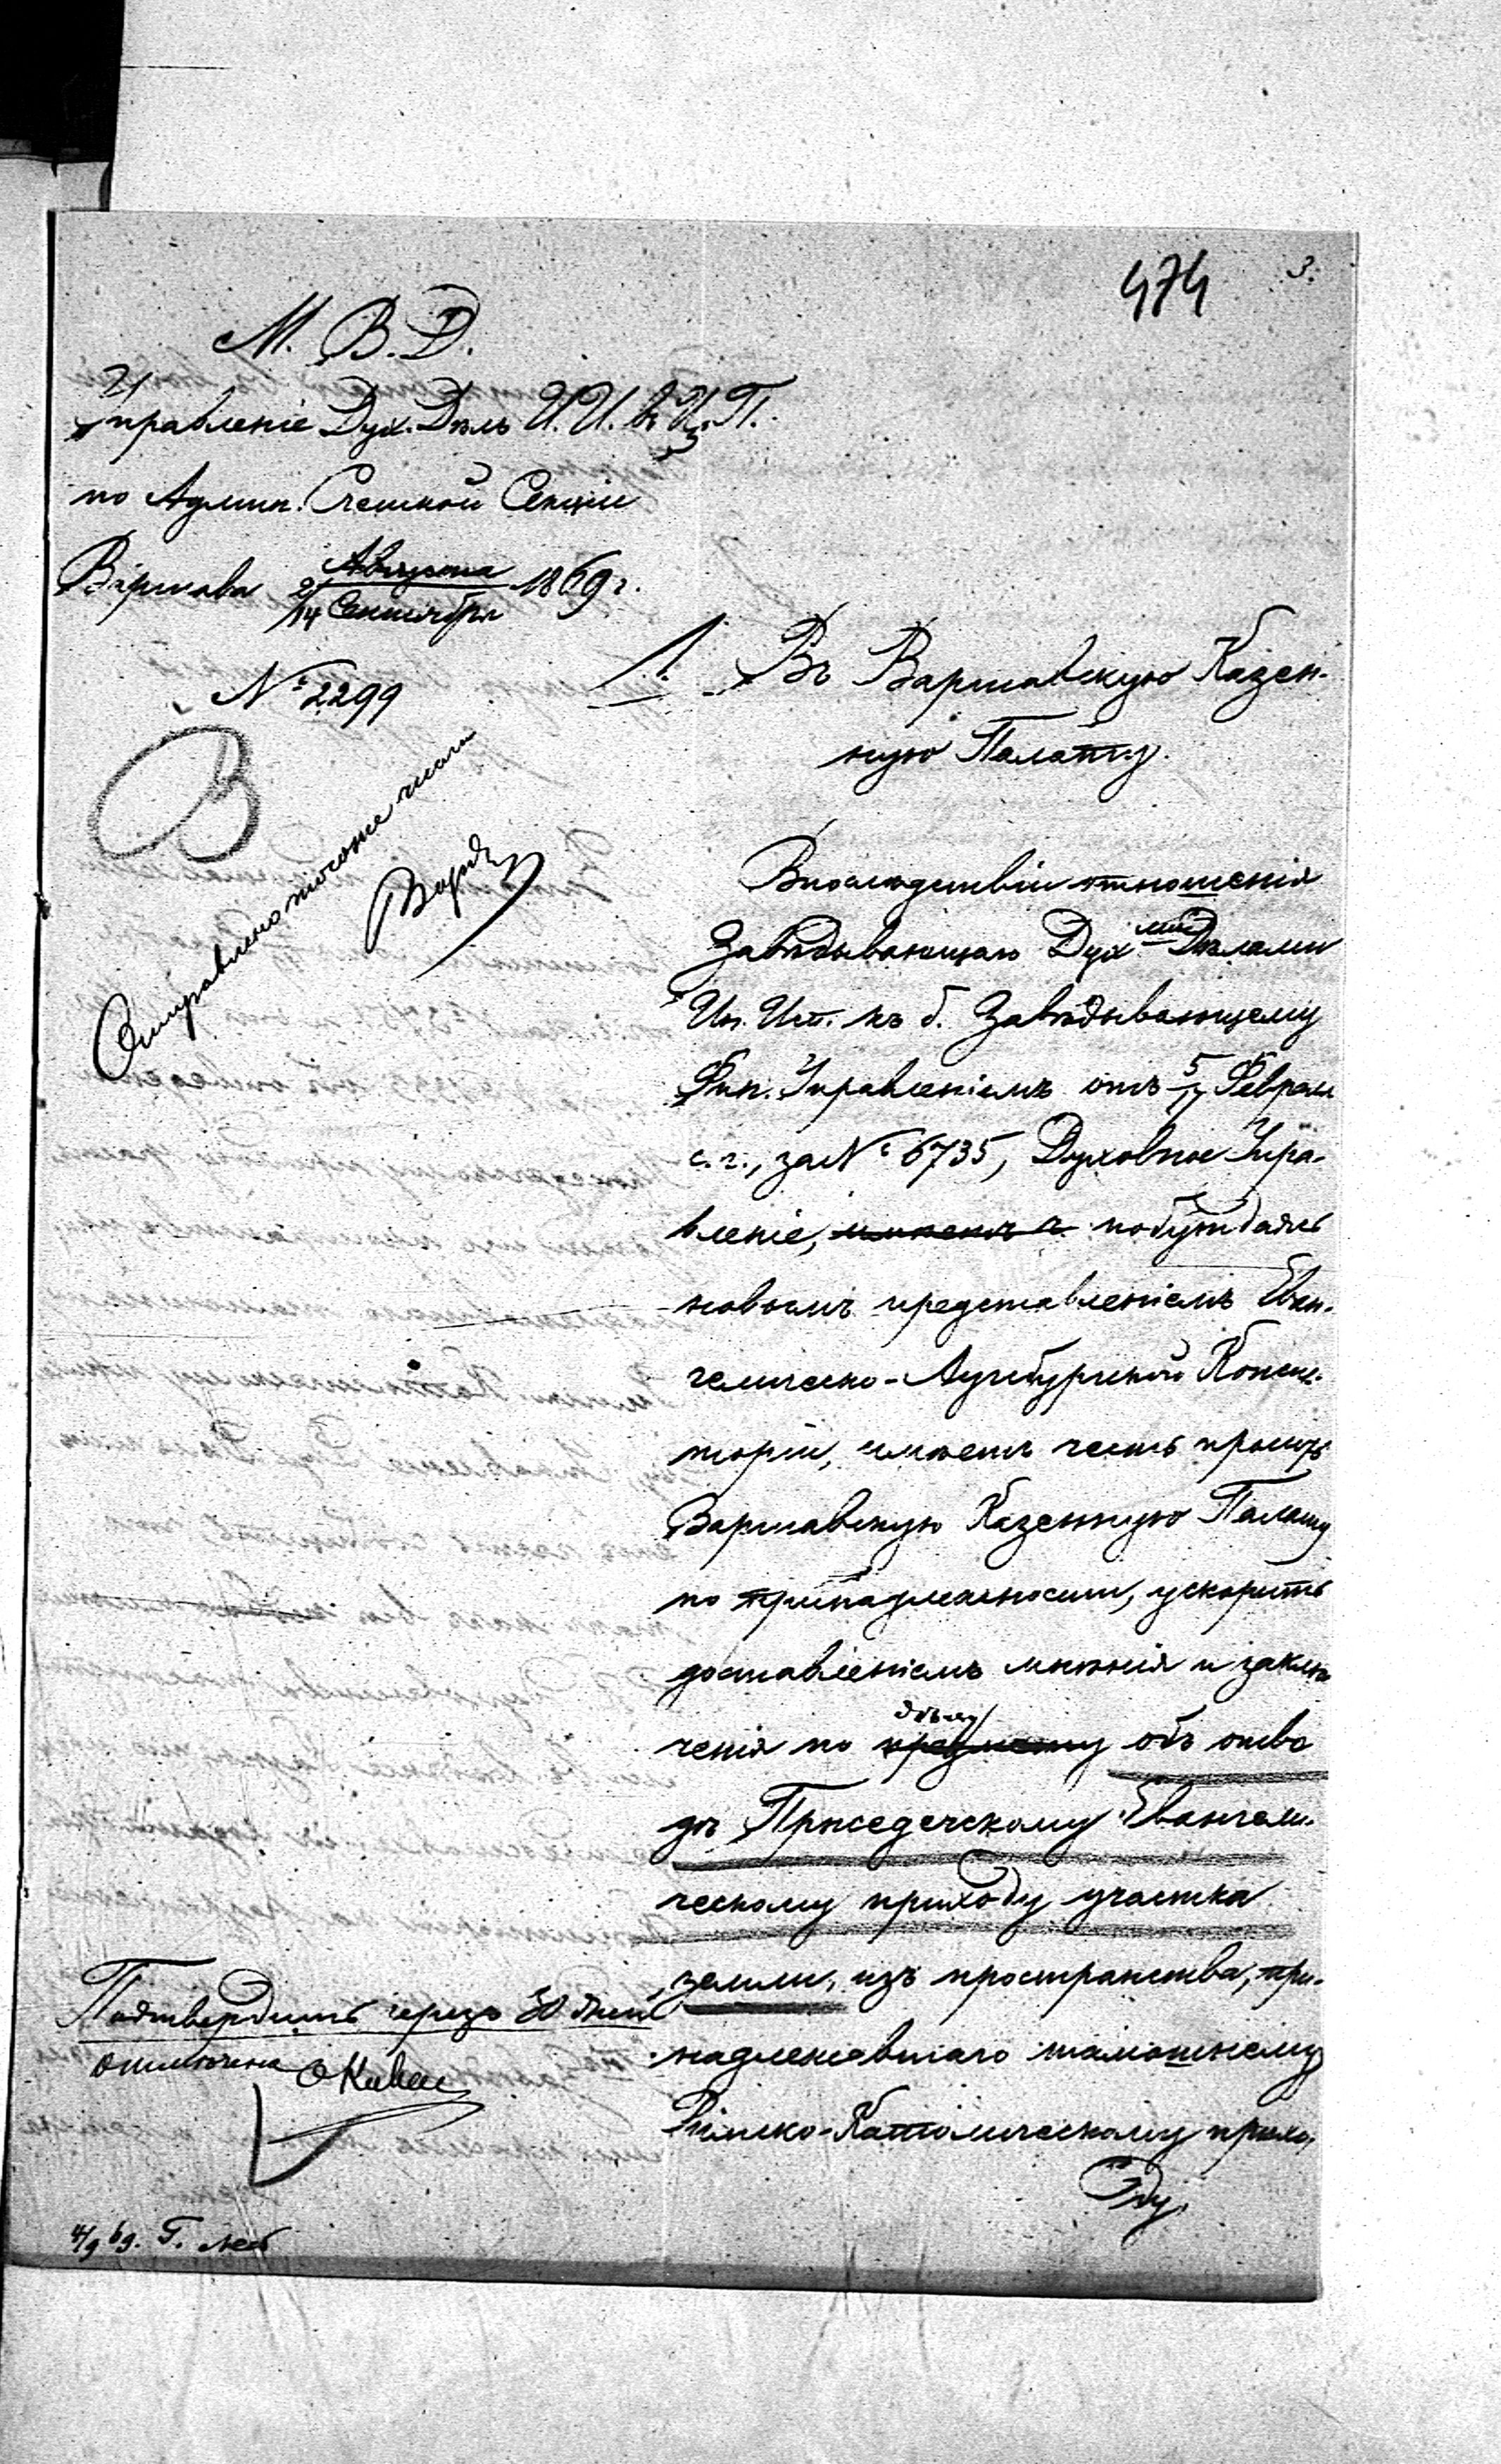 474 3.
М. В. Д.
Управленіе Дух. Дѣлъ И. И. въ Ц. П.
по Админ. Счетной Секціи
Варшава 2/14 Августа Сентября 1869 г.
№ 2299
Въ Варшавскую Казен-
ную Палату.
В
Отправлено того же числа
Впослѣдствіи отношенія
Завѣдывающаго Дух ми Дѣлами
Ин. Исп. къ б. Завѣдывающему
Фин. Управленіемъ отъ 5/17 Февраля
с. г., за № 6735, Духовное Упра-
вленіе, имѣетъ ч. побуждаясь
новымъ представленіемъ Еван-
гелическо-Аугсбургской Консис-
торіи, имѣетъ честь просить
Варшавскую Казенную Палату
по принадлежности, ускорить
доставленіемъ мнѣнія и заклю
ченія по предмету дѣлу объ отво
дѣ Пржедечскому Евангели-
ческому приходу участка
земли, изъ пространства, при-
надлежавшаго тамошнему
Римско-Католическому прихо-
ду.
Подтвердить черезъ 30 дней
отмѣчена
4/9 69. Г.